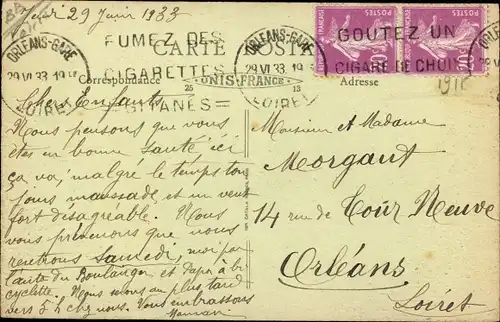 Jeudi 29 Juin 1933
ORLEANS-GARE
29 VI 33
LOIRET
FUMEZ DES
CIGARETTES
GITANES
CARTE POSTALE
UNIS-FRANCE
25
13
Correspondance
Adresse
ORLEANS-GARE
29 VI 33
LOIRET
GOUTEZ UN
CIGARE DE CHOIX
POSTES
Chers Enfants
Nous pensons que vous
êtes en bonne santé ici
ça va, malgré le temps tou
jours maussade et un vent
fort désagréable. Nous
vous prévenons que nous
rentrons Samedi, moi par
l'auto du Boulanger et Papa à bi
cyclette. Nous serons au plus tard
vers 5 h chez nous. Vous embrassons
Maman
Monsieur et Madame
Morgant
14 rue de Tour Neuve
Orléans
Loiret